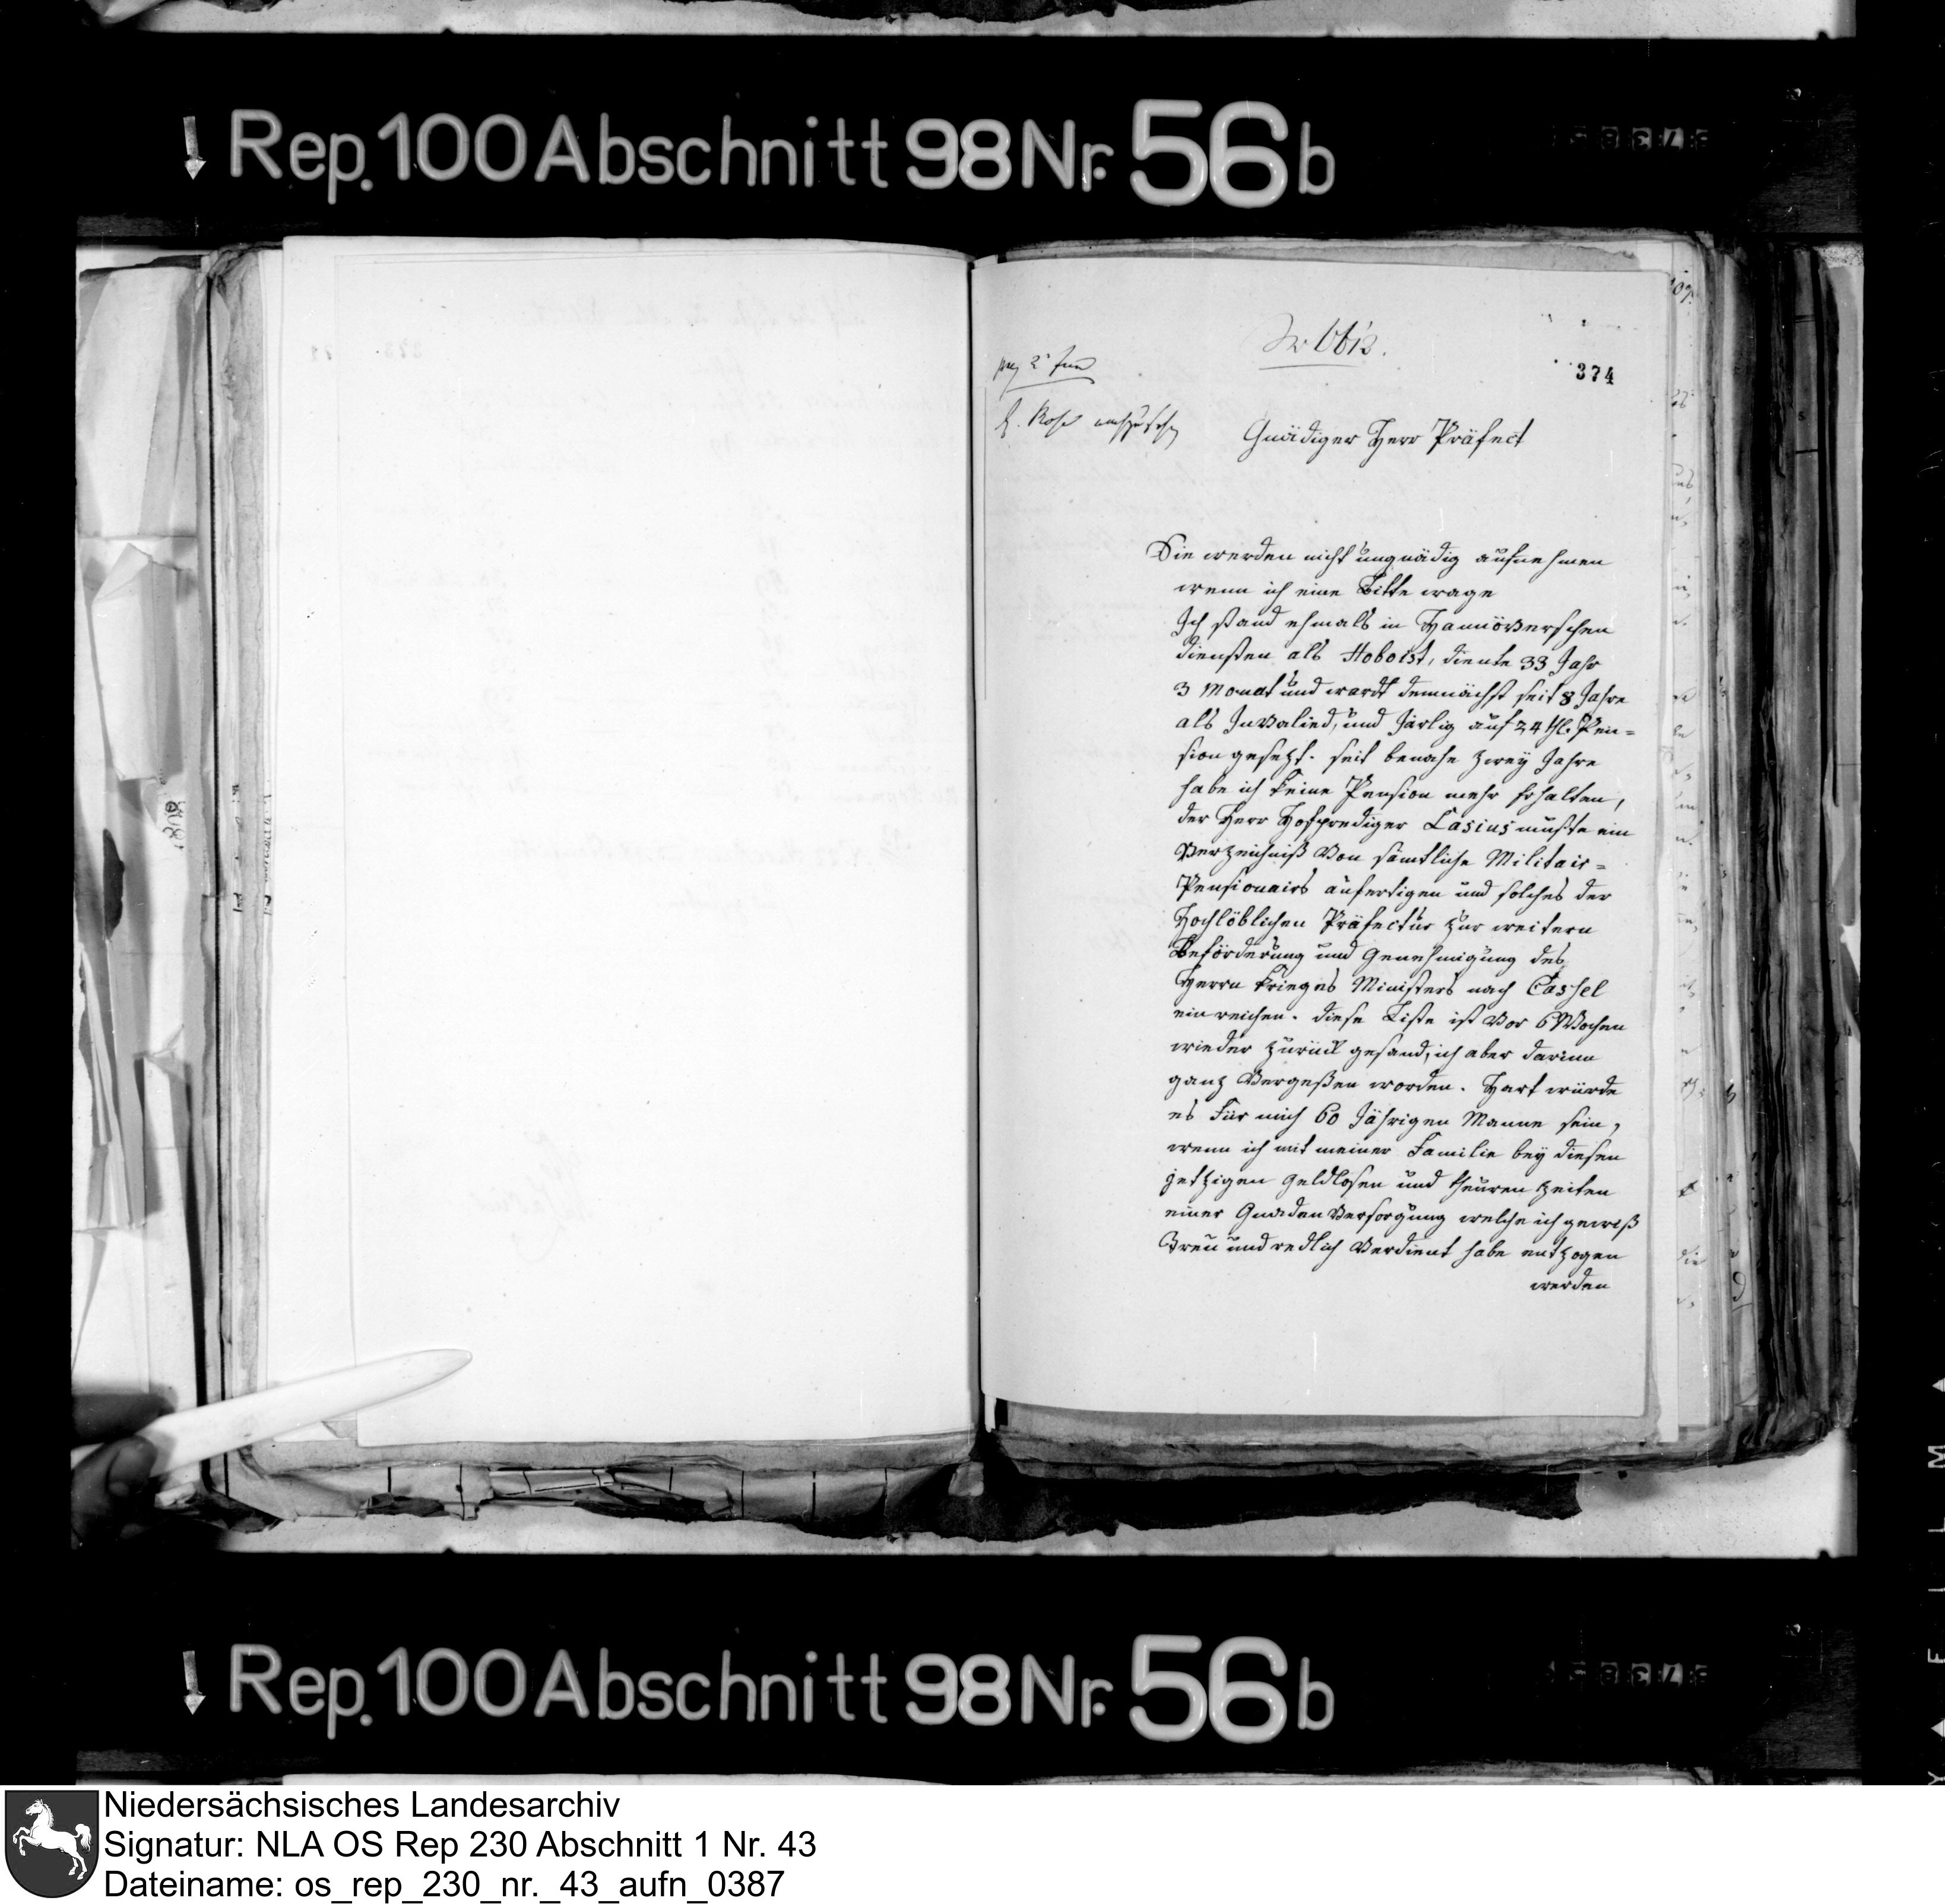 Rep. 100 Abschnitt 98 Nr. 56 b
No 6612.
374
Gnädiger Herr Präfect
Sie werden nicht ungnädig aufnehmen
wenn ich eine Bitte wage
Ich stand ehmals in Hannöverschen
diensten als Hoboist, diente 33 Jahr
3 Monat und wardt demnächst seit 8 Jahre
als Invalied, und Järlig auf 24 thl. Pen=
sion gesetzt. seit benahe zwey Jahre
habe ich keine Pension mehr erhalten,
der Herr Hofprediger Lasius mußte ein
Verzeichniß von sämtliche Militair=
Pensionairs aufertigen und solches der
Hochlöblichen Präfectur zur weitern
Beförderung und Genehmigung des
Herrn Krieges Ministers nach Cassel
ein reichen. diese Liste ist vor 6 Wochen
wieder zurück gesand, ich aber darinn
ganz vergeßen worden. Hart würde
es für mich 60 Jährigen Manne sein,
wenn ich mit meiner Familie bey diesen
jetzigen Geldlosen und theuren Zeiten
einer Gnaden Versorgung welche ich gewiß
Treu und redlich verdient habe entzogen
werden
Rep. 100 Abschnitt 98 Nr. 56 b
Niedersächsisches Landesarchiv
Signatur: NLA OS Rep 230 Abschnitt 1 Nr. 43
Dateiname: os_rep_230_nr._43_aufn_0387